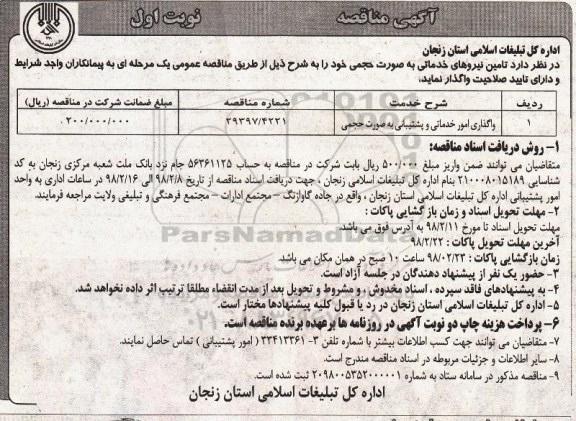 آگهی مناقصه
نوبت اول
اداره کل تبلیغات اسلامی استان زنجان
در نظر دارد تامین نیروهای خدماتی به صورت حجمی خود را به شرح ذیل از طریق مناقصه عمومی یک مرحله ای به پیمانکاران واجد شرایط
و دارای تایید صلاحیت واگذار نماید،
ردیف شرح خدمت شماره مناقصه مبلغ ضمانت شرکت در مناقصه (ریال)
۱ واگذاری امور خدماتی و پشتیبانی به صورت حجمی ۲۹۳۹۷/۴۲۲۱ ۲۰۰/۰۰۰/۰۰۰
۱- روش دریافت اسناد مناقصه:
متقاضیان می توانند ضمن واریز مبلغ ۵۰۰/۰۰۰ ریال بابت شرکت در مناقصه به حساب ۵۶۳۶۱۱۲۵ جام نزد بانک ملت شعبه مرکزی زنجان به کد
شناسایی ۲۱۰۰۰۸۰۱۵۱۸۹ بنام اداره کل تبلیغات اسلامی زنجان ، جهت دریافت اسناد مناقصه از تاریخ ۹۸/۲/۸ الی ۹۸/۲/۱۶ در ساعات اداری به واحد
امور پشتیبانی اداره کل تبلیغات اسلامی استان زنجان ، واقع در جاده گاوازنگ - مجتمع ادارات - مجتمع فرهنگی و تبلیغی ولایت مراجعه فرمایند.
۲- مهلت تحویل اسناد و زمان بازگشایی پاکات :
مهلت تحویل اسناد تا مورخ ۹۸/۲/۱۱ به آدرس فوق می باشد.
آخرین مهلت تحویل پاکات : ۹۸/۲/۲۲
زمان بازگشایی پاکات : ۹۸/۰۲/۲۳ ساعت ۱۰ صبح در همان مکان می باشد.
۳- حضور یک نفر از پیشنهاد دهندگان در جلسه آزاد است.
۴- به پیشنهادهای فاقد سپرده ، اسناد مخدوش ، و مشروط و تحویل بعد از مدت انقضاء مطلقا ترتیب اثر داده نخواهد شد.
۵- اداره کل تبلیغات اسلامی استان زنجان در رد یا قبول کلیه پیشنهادها مختار است.
۶- پرداخت هزینه چاپ دو نوبت آگهی در روزنامه ها برعهده برنده مناقصه است.
۷- متقاضیان می توانند جهت کسب اطلاعات بیشتر با شماره تلفن ۳- ۳۳۴۱۳۳۶۱ ( امور پشتیبانی ) تماس حاصل نمایند.
۸- سایر اطلاعات و جزئیات مربوطه در اسناد مناقصه مندرج است.
۹- مناقصه مذکور در سامانه ستاد به شماره ۲۰۹۸۰۰۵۳۵۲۰۰۰۰۰۱ ثبت شده است.
اداره کل تبلیغات اسلامی استان زنجان
ParsNamadData